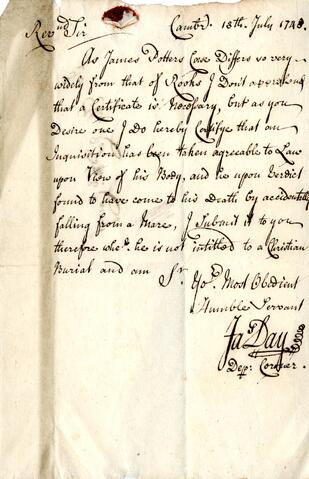 Camb: 18th. July 1748.
Revnd Sir
As James Potters Case Differs so very
widely from that of Rooks I Don't apprehend
that a Certificate is Necessary, but as you
Desire one I do hereby Certifye that an
Inquisition has been taken agreable to Law
upon View of his Body, and he upon Verdict
found to have come to his Death by accidentally
falling from a Mare, I Submit it to you
therefore wher. he is not intitled to a Christian
Burial and am Sr. Yor. Most Obedient
Humble Servant
Jas Day
Dep: Coroner.